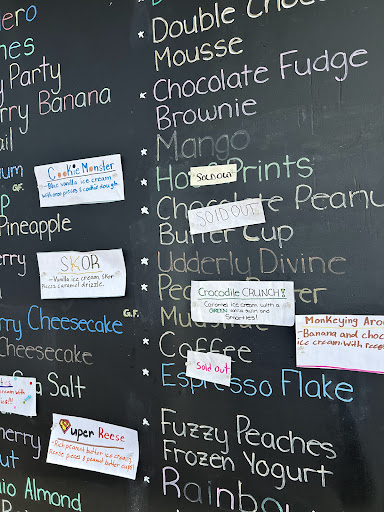 ero
nes
y Party
rry Banana
ail
ium
G.F.
Cookie Monster
-Blue vanilla ice cream
with oreo pieces & cookie dough
P
Pineapple
erry
SKOR
-Vanilla ice cream, Skor
Pieces caramel drizzle.
rry Cheesecake G.F.
Cheesecake
Salt
ice cream with
herry
ut
Super Reese
-Rich peanut butter ice cream,
Reese pieces & peanut butter cups!
io Almond
Double Choc
Mousse
Chocolate Fudge
Brownie
Mango
Prints
Sold out
Peanu
SOLD OUT
Butter Cup
Udderly Divine
Crocodile CRUNCH!
Caramel ice cream with a
GREEN vanilla swirl and
Smarties!
Monkeying Aro
-Banana and choc
ice cream with Reese
Coffee
Sold out
Espresso Flake
Fuzzy Peaches
Frozen Yogurt
Rainbow